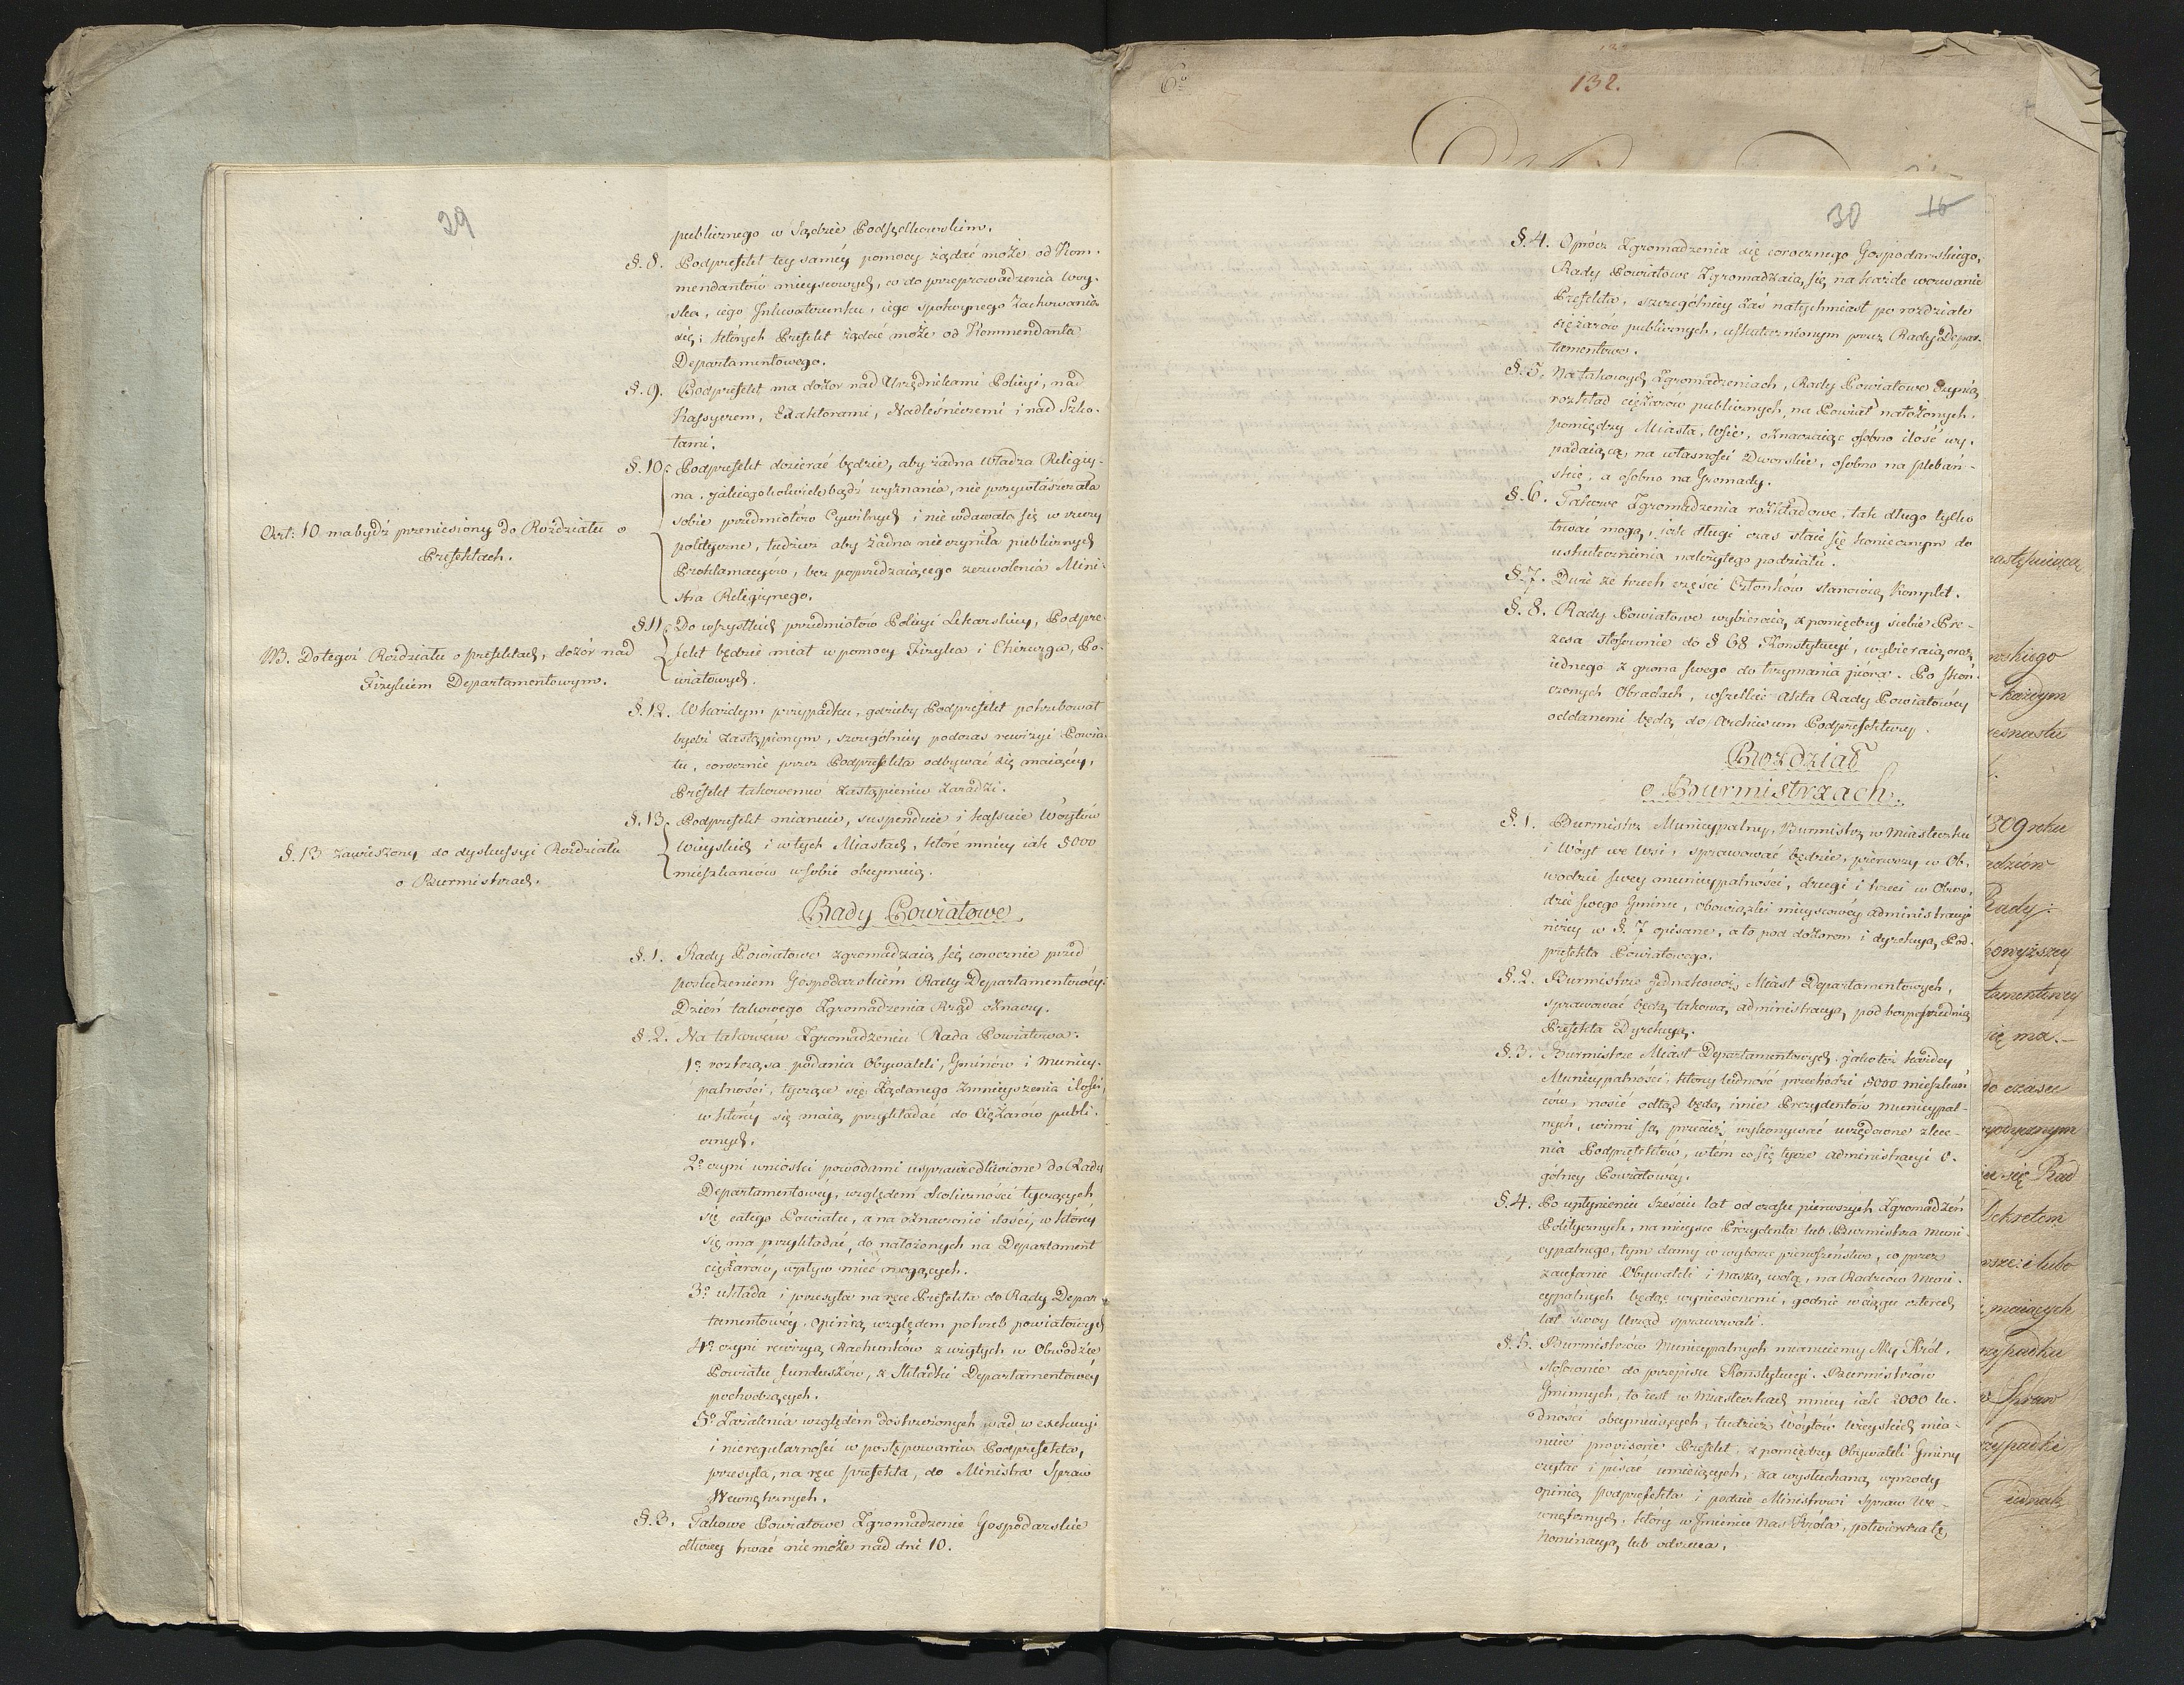 29
publicznego w Sądzie Podsędkowskim.
§. 8. Podprefekt tey saméy pomocy żądać może od Kom-
mendantów mieyscowych, co do przeprowadzenia Woy-
ska, iego Inkwaterunku, iego spokoynego zachowania
się; których Prefekt żądać może od Kommendanta
Departamentowego.
§. 9. Podprefekt ma dozor nad Urzędnikami Policyi, nad
Kassyerem, Exaktorami, Nadleśniczemi i nad Szko-
łami.
§. 10. Podprefekt dozierać będzie, aby żadna Władza Religiy-
na, jakiegokolwiek bądź wyznania, nie przywłaszczała
sobie przedmiotów Cywilnych i nie wdawała się w rzeczy
polityczne, tudzież aby żadna nie czyniła publicznych
Proklamacyów, bez poprzedzaiącego zezwolenia Mini-
stra Religiynego.
Art: 10 ma bydź przeniesiony do Rozdziału o
Prefektach.
§ 11. Do wszystkich przedmiotów Policyi Lekarskiey, Podpre-
fekt będzie miał w pomocy Fizyka i Chirurga, Po-
wiatowych.
NB. Do tegoż Rozdziału o prefektach, dozór nad
Fizykiem Departamentowym.
§. 12. W każdym przypadku, gdzieby Podprefekt potrzebował
bydź zastąpionym, szczególniey podczas rewizyi Powia-
tu, corocznie przez Podprefekta odbywać się maiącéy,
Prefekt takowemu zastąpieniu zaradzi.
§. 13. Podprefekt mianuie, suspenduie i kassuie Wóytów
Wieyskich i w tych Miastach, które mniéy iak 5000
mieszkańców w sobie obeymuią.
§. 13 zawieszony do dyskussyi Rozdziału
o Burmistrzach.
Rady Powiatowe.
§. 1. Rady Powiatowe zgromadzaią się corocznie przed
posiedzeniem Gospodarskiém Rady Departamentowéy.
Dzień takowego Zgromadzenia Rząd oznaczy.
§. 2. Na takowém Zgromadzeniu Rada Powiatowa.
1º roztrząsa podania Obywateli, Gminów i Municy-
palności, tyczące się żądanego zmnieyszenia ilości,
w któréy się maią przykładać do Ciężarów publi-
cznych.
2º czyni wnioski powodami usprawiedliwione do Rady
Departamentowéy, względem okoliczności tyczących
się całego Powiatu, a na oznaczenie ilości, w któréy
się ma przykładać, do nałożonych na Departament
ciężarów, wpływ mieć mogących.
3º układa i przesyła na ręce Prefekta do Rady Depar-
tamentowéy, opinią względem potrzeb powiatowych
4º czyni rewizyą Rachunków z wziętych w Obwodzie
Powiatu funduszów, z Składki Departamentowéy
pochodzących.
5º Zażalenia względem dostrzeżonych wad w exekucyi
i nieregularności w postępowaniu Podprefekta,
przesyła, na ręce prefekta, do Ministra Spraw
Wewnętrznych.
§. 3. Takowe Powiatowe Zgromadzenie Gospodarskie
dłużey trwać nie może nad dni 10.
6º
132.
30 16
§. 4. Oprócz Zgromadzenia się corocznego Gospodarskiego,
Rady Powiatowe Zgromadzaią się na każde wezwanie
Prefekta, szczególniey zaś natychmiast po rozdziale
ciężarów publicznych, uskutecznionym przez Rady Depar-
tamentowe.
§. 5. Na takowych Zgromadzeniach, Rady Powiatowe czynią
rozkład ciężarów publicznych, na Powiat nałożonych,
pomiędzy Miasta, Wsie, oznaczaiąc osobno ilość wy-
padaiącą na własności Dworskie, osobno na plebań-
skie, a osobno na Gromady.
§. 6. Takowe Zgromadzenia rozkładowe, tak długo tylko
trwać mogą, iak długi czas staie się koniecznym do
uskutecznienia należytego podziału.
§ 7. Dwie ze trzech części Członków stanowią Komplet.
§. 8. Rady Powiatowe wybieraią z pomiędzy siebie Pre-
zesa stosownie do § 68 Konstytucyi, wybieraią oraz
iednego z grona swego do trzymania pióra. Po skoń-
czonych Obradach, wszelkie Akta Rady Powiatowéy
oddanemi będą do Archiwum Podprefektury.
Rozdział
o Burmistrzach.
§. 1. Burmistrz Municypalny, Burmistrz w Miasteczku
i Wóyt we Wsi, sprawować będzie, pierwszy w Ob-
wodzie swey municypalności, drugi i trzeci w Obwo-
dzie swego Gminu, obowiązki mieyscowéy administracyi
niżey w §. 7 opisane, a to pod dozorem i dyrekcyą Pod-
prefekta Powiatowego.
§. 2. Burmistrze jednakowoż Miast Departamentowych,
sprawować będą takową administracyą pod bezpośrednią
Prefekta Dyrekcyą.
§. 3. Burmistrze Miast Departamentowych, jakoteż każdey
Municypalności, którey ludność przechodzi 5000 mieszkań-
ców, nosić odtąd będą imie Prezydentów municypal-
nych, winni są przecież wykonywać urzędowne zlece-
nia Podprefektów, w tém co się tycze administracyi o-
gólney Powiatowéy.
§. 4. Po upłynieniu sześciu lat od czasu pierwszych Zgromadzeń
Politycznych, na mieysce Prezydenta lub Burmistrza Muni-
cypalnego, tym damy w wyborze pierwszeństwo, co przez
zaufanie Obywateli i Naszą wolą, na Radzców Muni-
cypalnych będąc wyniesionemi, godnie w ciągu czterech
lat swoy Urząd sprawowali.
§. 5. Burmistrzów Municypalnych mianuiemy My Król,
stosownie do przepisu Konstytucyi. Burmistrzów
Gminnych, to iest w Miasteczkach mniey iak 2000 lu-
dności obeymuiących, tudzież Wóytów Wieyskich mia-
nuie provisorie Prefekt, z pomiędzy Obywateli Gminy
czytać i pisać umieiących, za wysłuchaną wprzody
opinią podprefekta i podaie Ministrowi Spraw We-
wnętrznych, który w Imieniu Nas Króla, potwierdza tę
Nominacyą lub odrzuca.
wskiego
każdym
1809 roku
Rady:
powyższey
tamentowey
się ma.
do czasu
się Rad
Dekretem
maiących
w Spraw
iednak